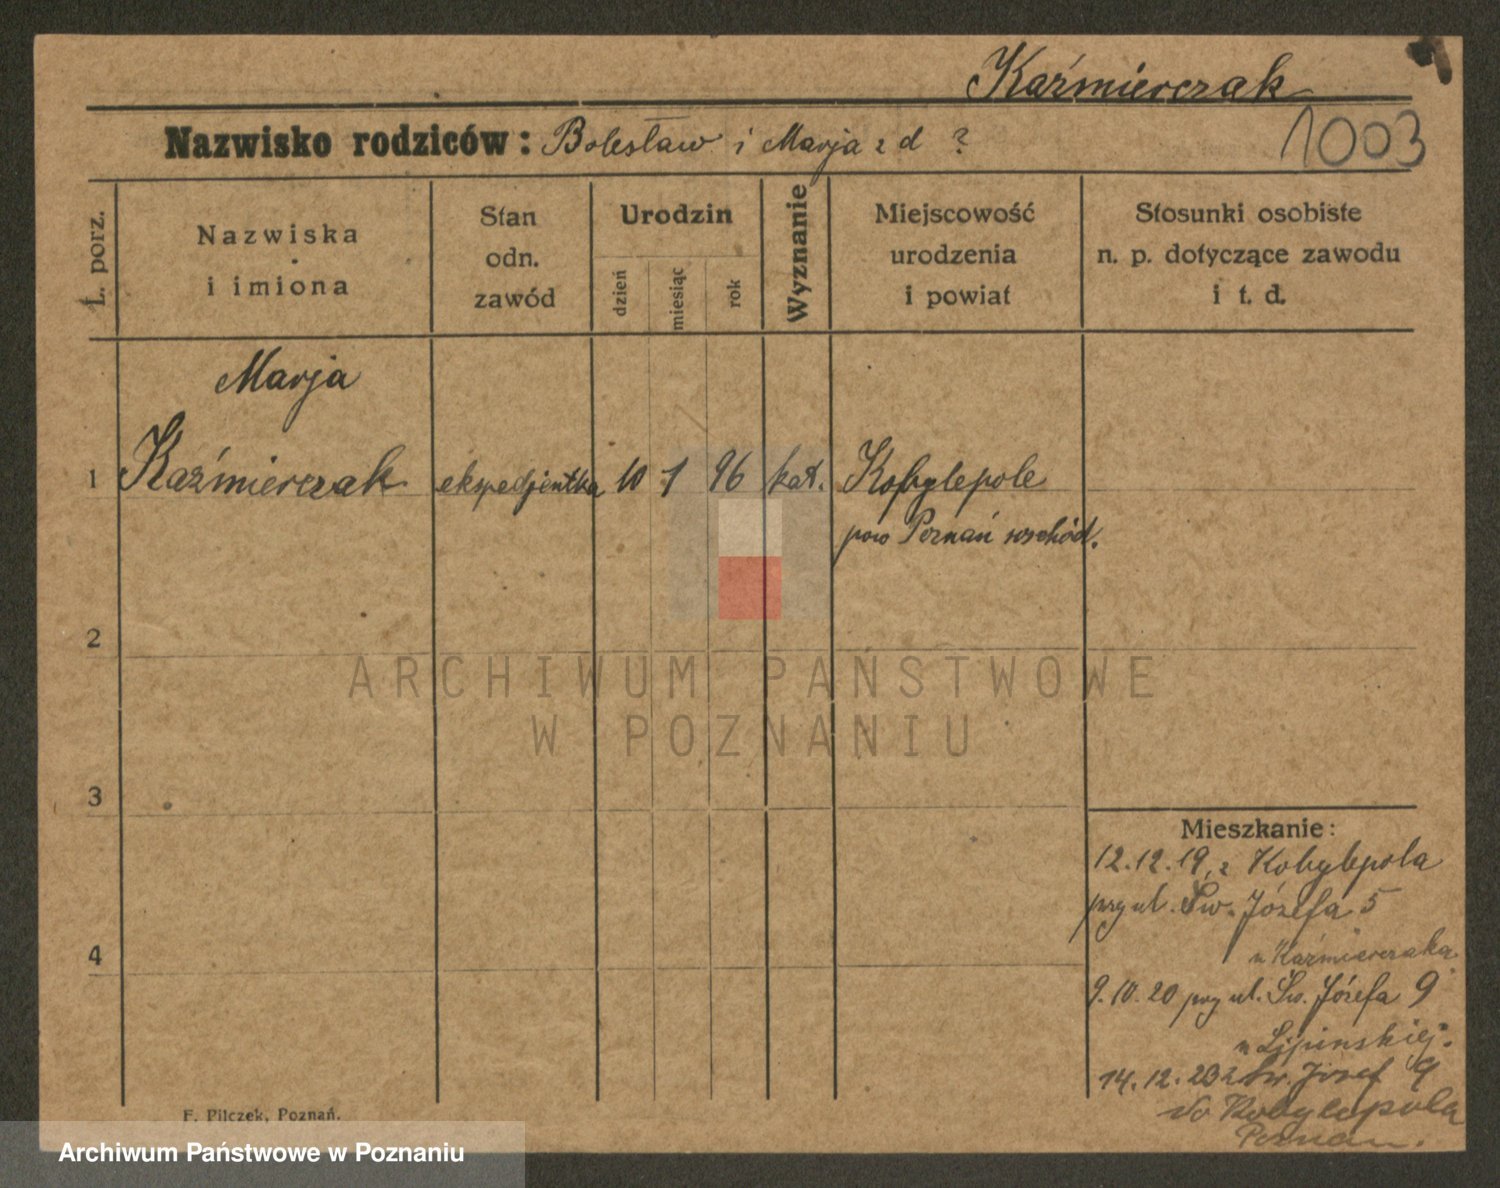 Kaźmierczak
Nazwisko rodziców: Bolesław i Marja z d ?
1003
L. porz.
Nazwiska
i imiona
Stan
odn.
zawód
Urodzin
dzień
miesiąc
rok
Wyznanie
Miejscowość
urodzenia
i powiat
Stosunki osobiste
n. p. dotyczące zawodu
i t. d.
Marja
1 Kaźmierczak ekspedjentka 10 1 96 kat. Kobylepole
pow Poznań wschód.
2
3
4
Mieszkanie:
12.12.19, z Kobylepola
przy ul. Św. Józefa 5
u Kaźmierczaka
9.10.20 przy ul. Św. Józefa 9
u Lipinskiej.
14.12.23 z Św. Józef 9
do Kobylepola
Poznan.
F. Pilczek, Poznań.
ARCHIWUM PAŃSTWOWE
W POZNANIU
Archiwum Państwowe w Poznaniu